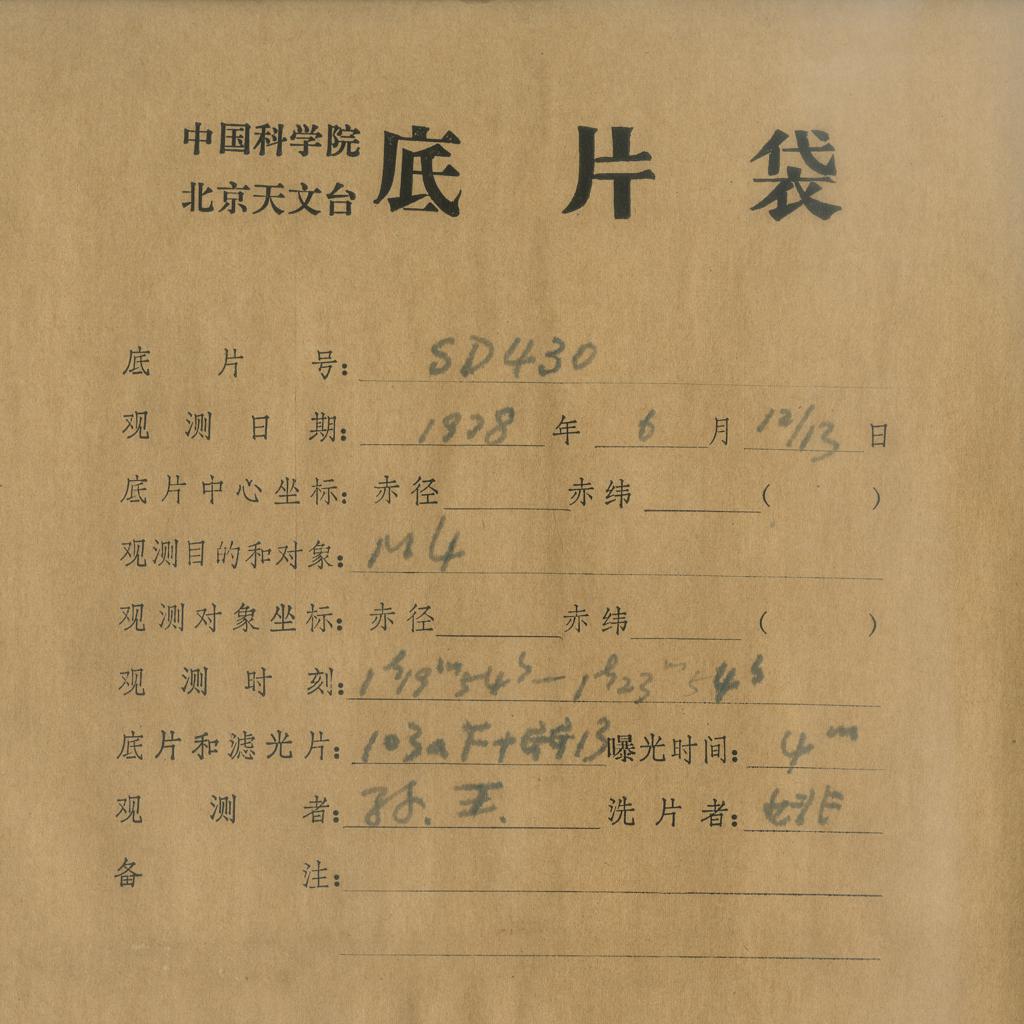 中国科学院
北京天文台
底片袋
底片号：SD430
观测日期：1978年6月12/13日
底片中心坐标：赤径 赤纬 （ ）
观测目的和对象：M4
观测对象坐标：赤径 赤纬 （ ）
观测时刻：1h19m54s—1h23m54s
底片和滤光片：103aF+ 13 曝光时间：4m
观测者：孙.王. 洗片者：
备注：